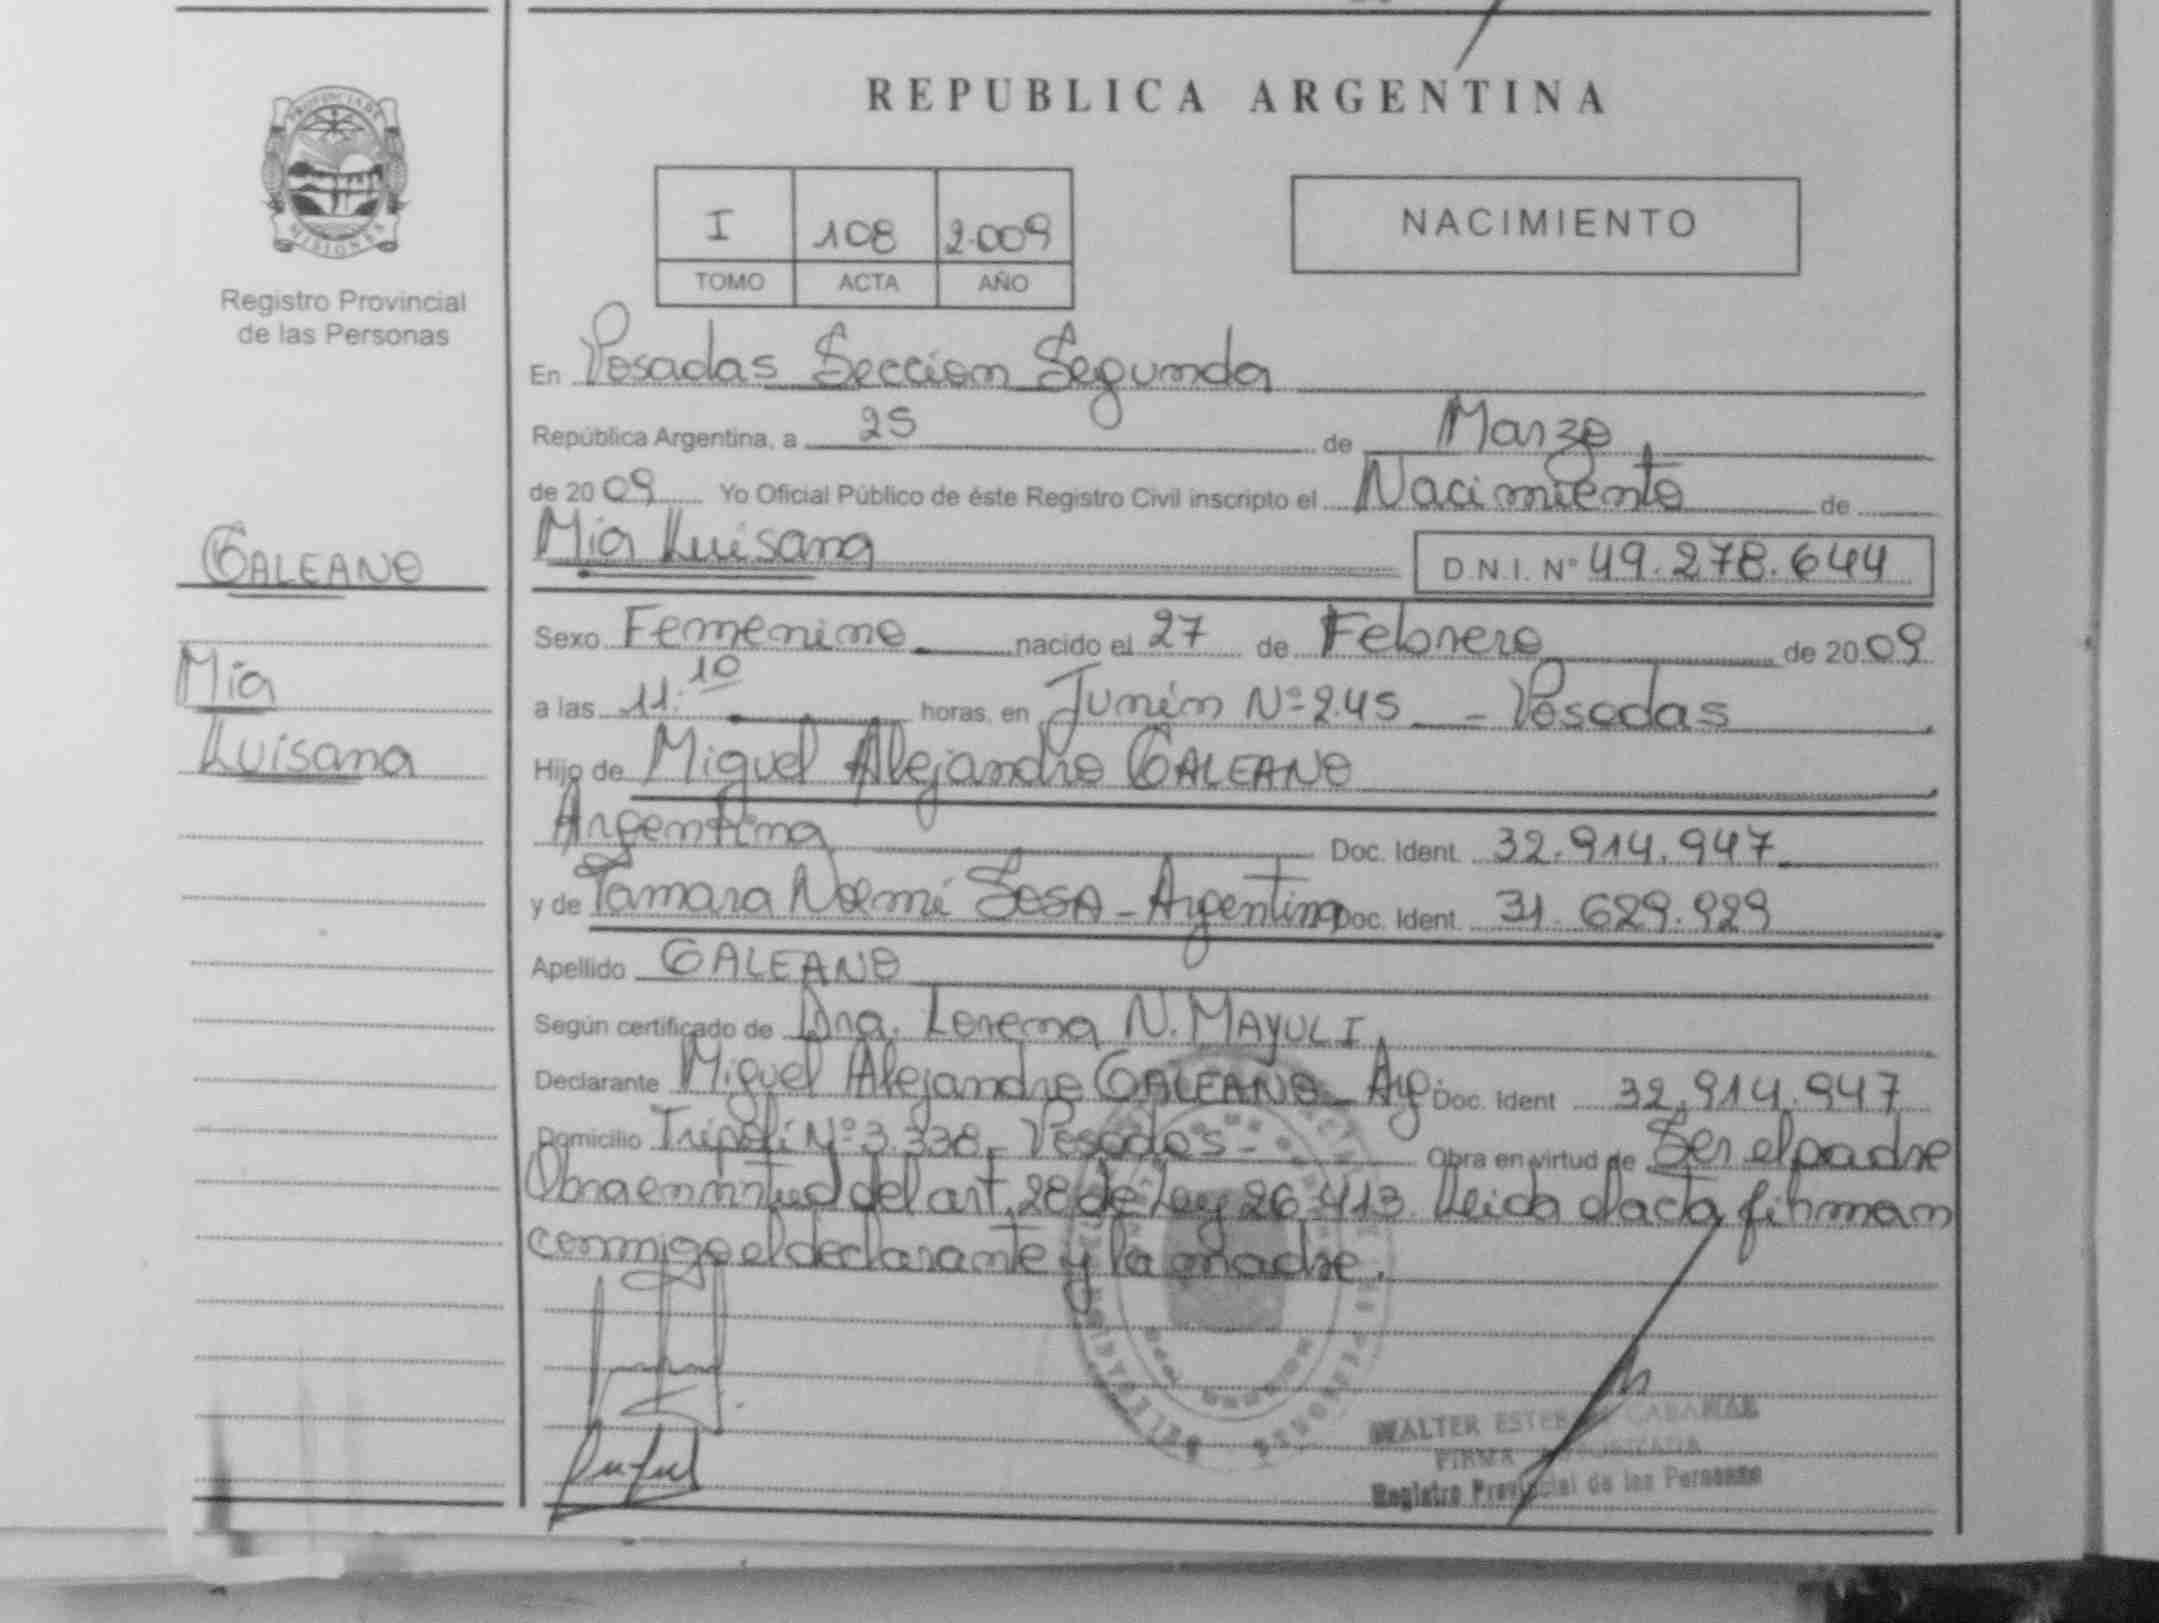 REPUBLICA ARGENTINA
PROVINCIA DE
MISIONES
Registro Provincial
de las Personas
I 108 2.009
TOMO ACTA AÑO
NACIMIENTO
En Posadas Seccion Segunda
República Argentina, a 25 de Marzo
de 2009 Yo Oficial Público de éste Registro Civil inscripto el Nacimiento de
Mia Luisana D.N.I. Nº 49.278.644
GALEANO
Mia
Luisana
Sexo Femenino nacido el 27 de Febrero de 2009
a las 11.10 horas, en Junin Nº 2.45 - Posadas
Hijo de Miguel Alejandro GALEANO
Argentina Doc. Ident. 32.914.947
y de Tamara Noemi SOSA - Argentina Doc. Ident. 31.629.929
Apellido GALEANO
Según certificado de Dra. Lorena N. MAYULI
Declarante Miguel Alejandro GALEANO - Arg. Doc. Ident 32.914.947
Domicilio Tripoli Nº 3.338 - Posadas - Obra en virtud de Ser el padre
Obra en virtud del art. 28 de Ley 26.413. Leida el acta firman
conmigo el declarante y la madre.
WALTER
FIRMA
Registro Provincial de las Personas